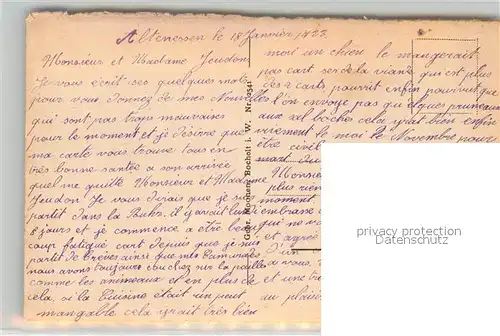 Altenessen le 18 Janvier 1923
Monsieur et Madame Jeudon
Je vous écrit ses quelques mots
pour vous donnez de mes Nouvelles
qui sont pas trops mauvaises
pour le moment et je désire que
ma carte vous trouve tous en
très bonne santée a son arrivée
quel me quitte Monsieur et Madame
Jeudon Je vous dirais que je suis
partit dans la Ruhr il y avait
8 jours et je commence a être
coup fatigué cart depuis que je suis
partit de Trèves ainsi que mes Camarades
nous avons toujours couchez sur la paille
comme les animeaux et en plus de
cela, si la Cuisine était un peut
mangable cela yrait très bien
moi un chien le mangerait
pas cart ser de la viande qui est plus
des 2 carts pourrit enfin pourvuit que
l'on envoye pas quelques pruneaux
aux boches cela yrait bien enfin
vivement le moi de Novembre pour
être civil
Monsieur
plus rien
moment
embrasse
et après
d'un
a vous
et une
au plaisir
Gebr. Monnens, Bocholt i. W. Nr. 3541
privacy protection
Datenschutz